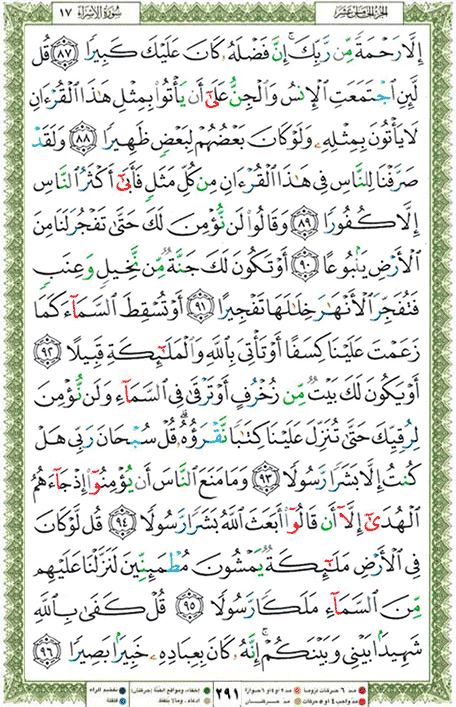 سُورَةُ الإِسْرَاءِ ١٧ الجُزْءُ الخَامِسَ عَشَرَ
إِلَّا رَحْمَةً مِّن رَّبِّكَ ۚ إِنَّ فَضْلَهُۥ كَانَ عَلَيْكَ كَبِيرًا ﴿٨٧﴾ قُل
لَّئِنِ ٱجْتَمَعَتِ ٱلْإِنسُ وَٱلْجِنُّ عَلَىٰٓ أَن يَأْتُوا۟ بِمِثْلِ هَٰذَا ٱلْقُرْءَانِ
لَا يَأْتُونَ بِمِثْلِهِۦ وَلَوْ كَانَ بَعْضُهُمْ لِبَعْضٍ ظَهِيرًا ﴿٨٨﴾ وَلَقَدْ
صَرَّفْنَا لِلنَّاسِ فِى هَٰذَا ٱلْقُرْءَانِ مِن كُلِّ مَثَلٍ فَأَبَىٰٓ أَكْثَرُ ٱلنَّاسِ
إِلَّا كُفُورًا ﴿٨٩﴾ وَقَالُوا۟ لَن نُّؤْمِنَ لَكَ حَتَّىٰ تَفْجُرَ لَنَا مِنَ
ٱلْأَرْضِ يَنۢبُوعًا ﴿٩٠﴾ أَوْ تَكُونَ لَكَ جَنَّةٌ مِّن نَّخِيلٍ وَعِنَبٍ
فَتُفَجِّرَ ٱلْأَنْهَٰرَ خِلَٰلَهَا تَفْجِيرًا ﴿٩١﴾ أَوْ تُسْقِطَ ٱلسَّمَآءَ كَمَا
زَعَمْتَ عَلَيْنَا كِسَفًا أَوْ تَأْتِىَ بِٱللَّهِ وَٱلْمَلَٰٓئِكَةِ قَبِيلًا ﴿٩٢﴾
أَوْ يَكُونَ لَكَ بَيْتٌ مِّن زُخْرُفٍ أَوْ تَرْقَىٰ فِى ٱلسَّمَآءِ وَلَن نُّؤْمِنَ
لِرُقِيِّكَ حَتَّىٰ تُنَزِّلَ عَلَيْنَا كِتَٰبًا نَّقْرَؤُهُۥ ۗ قُلْ سُبْحَانَ رَبِّى هَلْ
كُنتُ إِلَّا بَشَرًا رَّسُولًا ﴿٩٣﴾ وَمَا مَنَعَ ٱلنَّاسَ أَن يُؤْمِنُوٓا۟ إِذْ جَآءَهُمُ
ٱلْهُدَىٰٓ إِلَّآ أَن قَالُوٓا۟ أَبَعَثَ ٱللَّهُ بَشَرًا رَّسُولًا ﴿٩٤﴾ قُل لَّوْ كَانَ
فِى ٱلْأَرْضِ مَلَٰٓئِكَةٌ يَمْشُونَ مُطْمَئِنِّينَ لَنَزَّلْنَا عَلَيْهِم
مِّنَ ٱلسَّمَآءِ مَلَكًا رَّسُولًا ﴿٩٥﴾ قُلْ كَفَىٰ بِٱللَّهِ
شَهِيدًۢا بَيْنِى وَبَيْنَكُمْ ۚ إِنَّهُۥ كَانَ بِعِبَادِهِۦ خَبِيرًۢا بَصِيرًا ﴿٩٦﴾
مدّ ٦ حركات لزوماً مدّ ٢ أو ٤ أو ٦ جوازاً ٢٩١ إخفاء، ومواقع الغنّة (حركتان) تفخيم الراء
مدّ واجب ٤ أو ٥ حركات مدّ حركتان إدغام، وما لا يُلفظ قلقلة